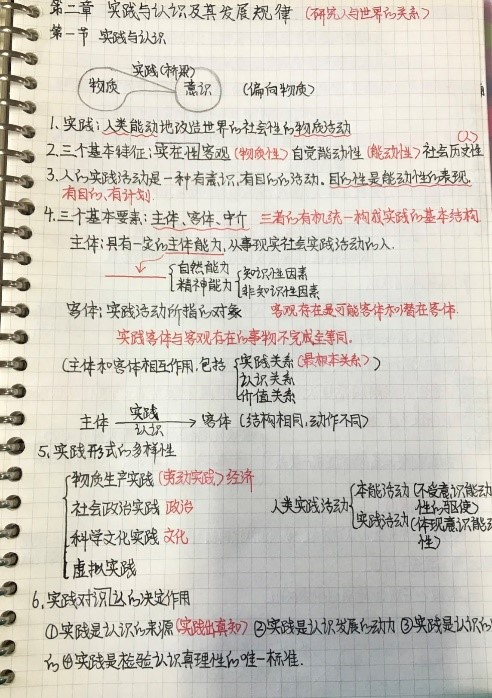 第二章 实践与认识及其发展规律 (研究人与世界的关系)
第一节 实践与认识
实践(桥梁)
物质 意识 (偏向物质)
1. 实践:人类能动地改造世界的社会性的物质活动
(人)
2. 三个基本特征:实在性客观(物质性) 自觉能动性(能动性) 社会历史性
3. 人的实践活动是一种有意识,有目的的活动。目的性是能动性的表现,
有目的,有计划.
4. 三个基本要素:主体、客体、中介 三者的有机统一构成实践的基本结构
主体:具有一定的主体能力,从事现实社会实践活动的人.
自然能力 知识性因素
精神能力 非知识性因素
客体:实践活动所指的对象 客观存在是可能客体和潜在客体.
实践客体与客观存在的事物不完成全等同。
(主体和客体相互作用,包括 实践关系(最根本关系))
认识关系
价值关系
主体 实践 客体 (结构相同,动作不同)
认识
5. 实践形式的多样性
物质生产实践(劳动实践)经济
社会政治实践 政治 人类实践活动 本能活动(不受意识能动
性的驱使)
科学文化实践 文化 实践活动(体现意识能动
性)
虚拟实践
6. 实践对认识的决定作用
①实践是认识的来源(实践出真知) ②实践是认识发展的动力 ③实践是认识的
的 ④实践是检验认识真理性的唯一标准.